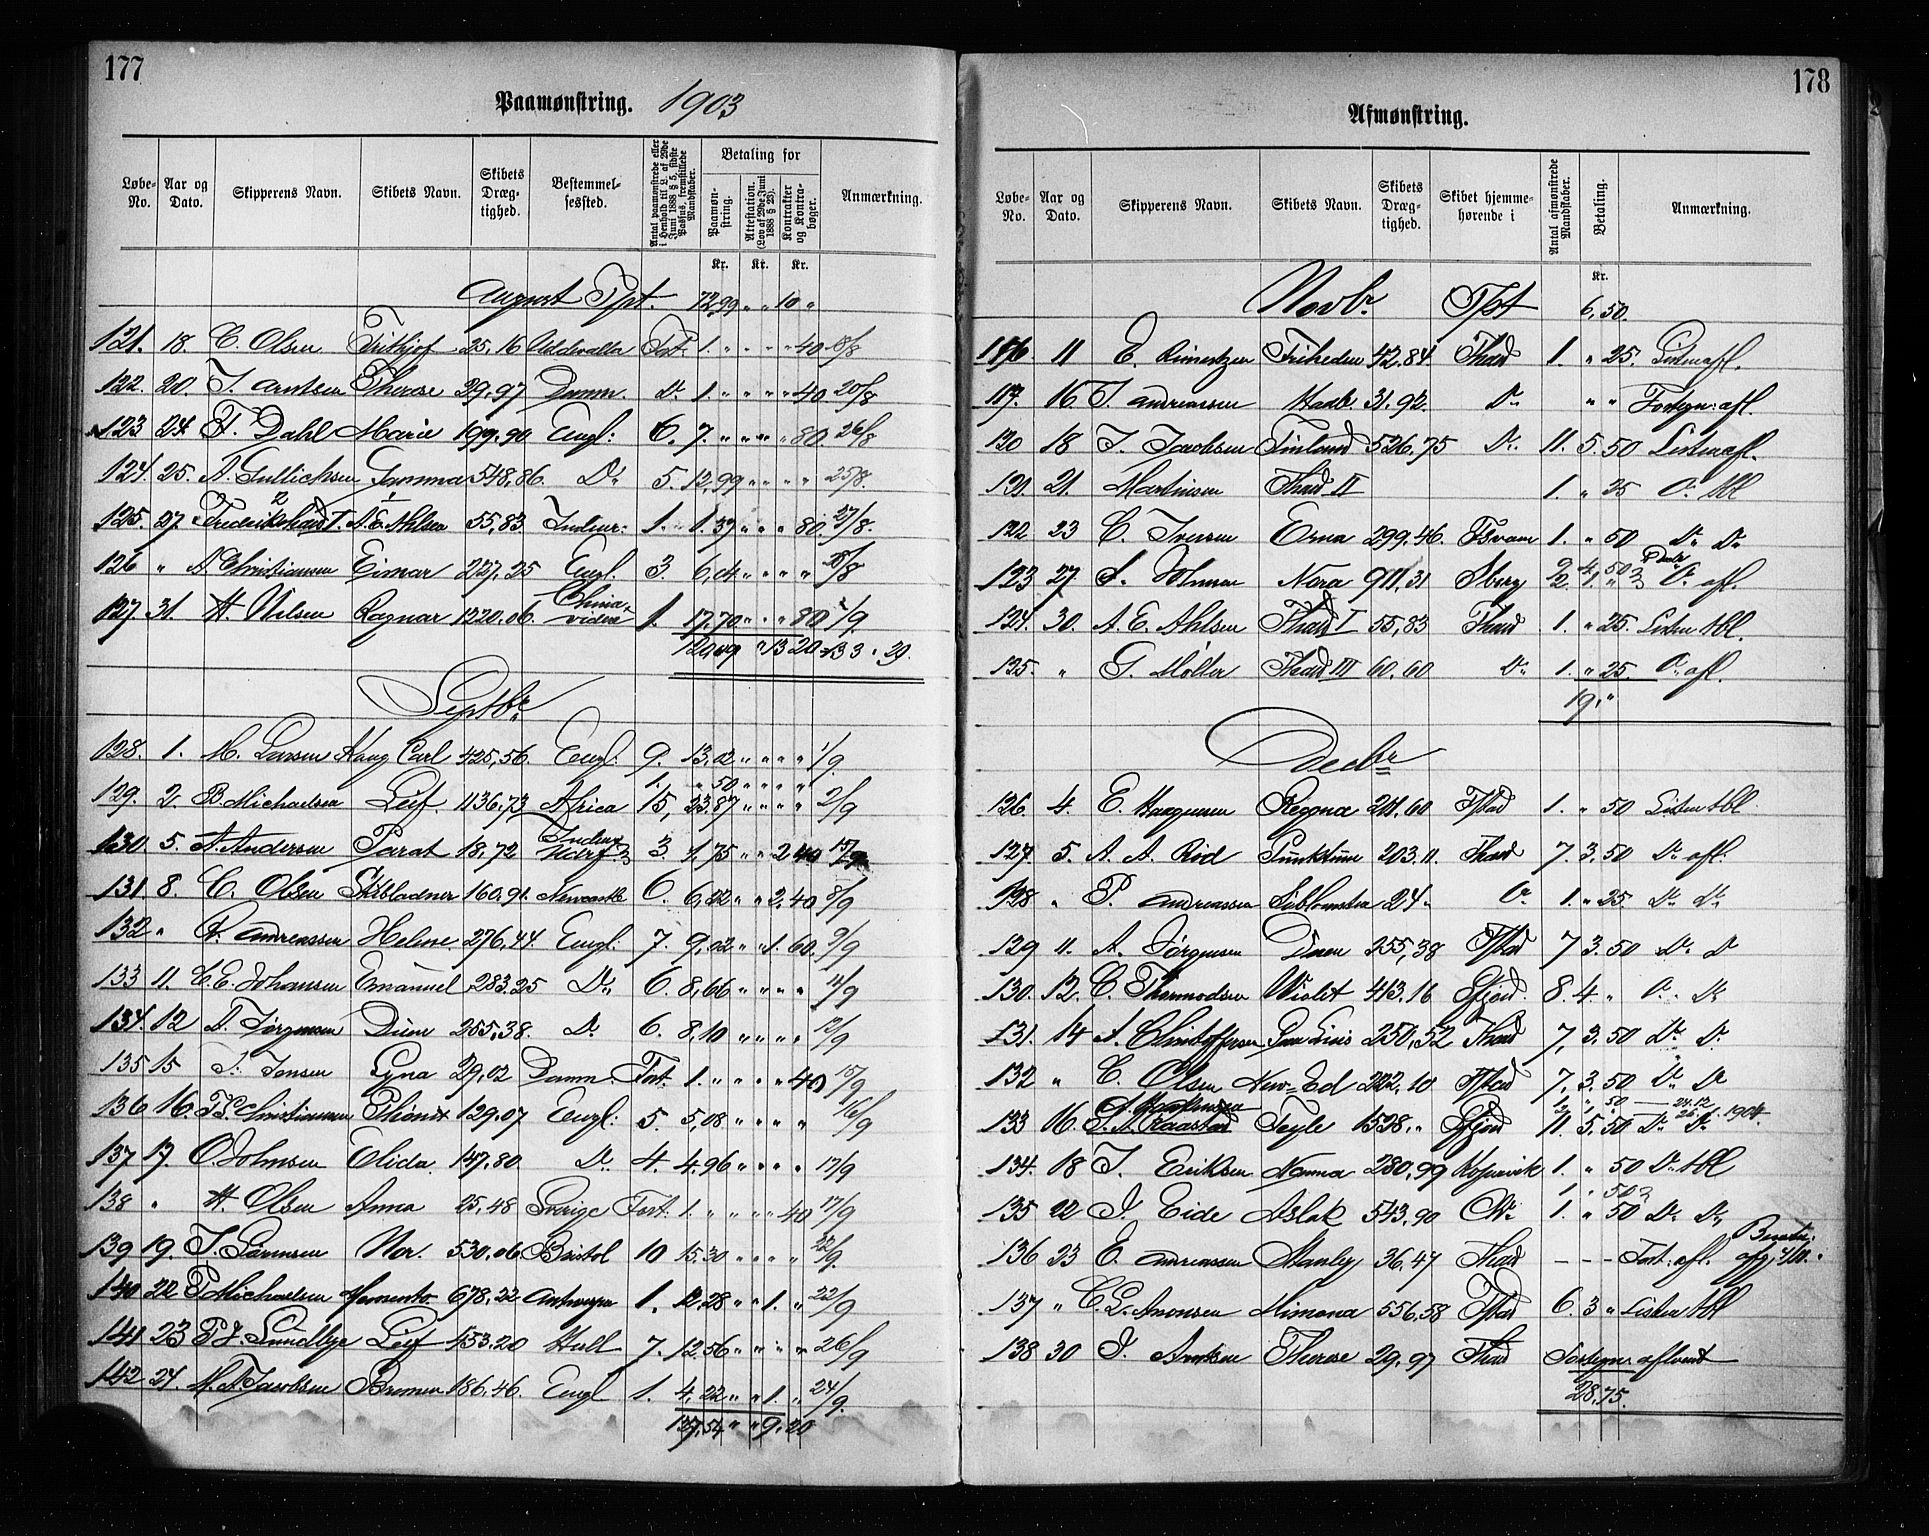 177
Paamønstring. 1903
Løbe-No.
Aar og Dato.
Skipperens Navn.
Skibets Navn.
Skibets Dræg-tighed.
Bestemmel-sessted.
Antal paamønstrede eller i Henhold til L. af 29de Juni 1888 § 5, sidste Passus, fremstillede Mandskaber.
Betaling for
Paamøn-string.
Attestation. (Lov af 29de Juni 1888 § 23).
Kontrakter og Kontra-bøger.
Anmærkning.
Kr. Kr. Kr.
August Tpt. 72,99 " " 10 "
121. 18. C. Olsen Frithjof 25,16 Uddevalla Fort. 1. " " " " 40 18/8
122. 20. J. Arntsen Therese 29,97 Danm. Do 1. " " " " 40 20/8
123 24 H. Dahl Marie 199,90 Engl: 6. 7. " " " " 80. 26/8
124. 25. A. Gullichsen Gamma 548,86 Do 5. 12,99 " " " " 25/8.
125. 27 Frederikshald I. A. E. Ahlsen 55,83 Indenr: 1. 1. 37 " " " 80. 27/8.
126 " A. Christiansen Eimar 227,25 Engl. 3. 6,04 " " " " 28/8
127. 31. H. Nilsen Ragnar 1220.06 China videre 1. 17.70 " " " 80 2/9.
120,09 " 13 20 = 133.29.
Septbr
128. 1. M. Larsen Haug Carl 425,56. Engl. 9. 13,02 " " " " 1/9.
1. " 50 " " " "
129. 2. B. Michaelsen Leif 1136,73 Africa 15, 23.87 " " " " 2/9
130. 5. A. Andersen Parat 18,72 3. 1,75 " " 2 40 15/9
131. 8. C. Olsen Skibladner 160.91 Newcastle 6. 6,22 " " 2. 40 8/9
132 " A. Andreassen Helene 276,44. Engl. 7. 9,02 " " 1. 60. 9/9
133 11. C. E. Johansen Emanuel 283.25 Do 6. 8,66 " " " " 11/9
134. 12 A. Jørgensen Duen 255,38. Do 6. 8,10 " " " " 12/9
135 15 J. Jensen Gyna 29,02 Danm. Fort. 1. " " " " 40 15/9
136 16. F. Christiansen Phønix 129.07 Engl: 5. 5,08 " " " " 16/9
137 17. O. Johnsen Elida 147.80 Do 4. 4.96 " " " " 17/9
138 " H. Olsen Anna 25,48 Sverige Fort. 1. " " " " 40 17/9
139 19. J. Sørensen Nor. 530.06 Bristol 10 15.30 " " " " 22/9.
140 22 P. Michaelsen Memento 678,22 Antwerpen 1. 12,28 " " 1. " 22/9
141 23 P. J. Lundbye Leif 453.20 Hull 7. 12.56 " " " " 26/9
142 24. M. A. Jacobsen Bremen 186.46. Engl 1. 4,22 " " 1. " 24/9.
137,54 " " 9.20
178
Afmønstring.
Løbe-No.
Aar og Dato.
Skipperens Navn.
Skibets Navn.
Skibets Dræg-tighed.
Skibet hjemme-hørende i
Antal afmønstrede Mandskaber.
Betaling.
Anmærkning.
Kr.
Novbr. Tpt 6,50.
116 11 E. Reinertzen Friheden 42.84. Fhad 1. " 25. Listen afl.
117. 16. J. Andreassen Haab. 31.92. Do " " Forlegn: afl.
120 18 J. Jacobsen Finland 526,75 Do 11. 5.50 Listen afl.
121. 21. Martinsen Fhad II 1. " 25 Do tbl
122 23 C. Iversen Erna 299.46. Fsvaer 1. " 50 Do Do
123 27 A. Johnsen Nora 911,31 Sberg Do afl.
124. 30. A. E. Ahlsen Fhad I 55,83 Fhad 1. " 25. Listen tbl.
125. " G. Møller Fhad III 60.60 Do 1. " 25. Do afl.
19. "
Decbr
126. 4. E. Haagensen Regina 211.60 Fstad 1. " 50 Listen tbl
127. 5. A. A. Rød Punktum 203.11. Fhad 7. 3.50 Do afl.
128 " P. Andreassen 24 " Do 1. " 25. Do Do
129 11. A. Jørgensen Duen 255,38 Fstad 7 3.50 Do D
130. 12. C. Thormodsen Violet 413,16 Sfjord. 8. 4 " Do Do
131. 14 A. Christoffersen 250,52 Fhad 7, 3.50 Do Do
132 " C. Olsen New-Ed 222.10 Fstad 7, 3.50 Do Do
1. " 50 — 24.12
133 16. Teyle 1538. " Sfjord 11. 5.50 Do Do 26.1. 1904.
134. 18 J. Eriksen Nanna 280,99 Kopervik 1. " 50 Do tbl
1 " 50
135 22 J. Eide Aslak 543.90 Chr 1. " 50 Do Do
136 23 E. Andreassen Stanley 36,47 Fhad - - - Fort. afl.
137 " C. L. Aronsen Mimona 556,58 Fstad 6. 3 " Listen tbl
138 30 J. Arntsen Therese 29,97 Fhad Forlegn: afleveret
28,75.